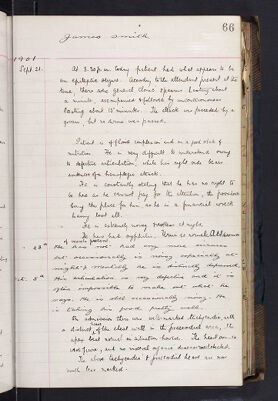 66
James Smith
1901
Sept. 21. At 3.30 p.m. today patient had what appears to be
an epileptic seizure. According to the attendant present at the
time there were general clonic spasms lasting about
a minute, accompanied & followed by unconsciousness
lasting about 15 minutes. The attack was preceded by a
groan, but no urine was passed.
Patient is of florid complexion and in a good state of
nutrition. He is very difficult to understand owing
to defective articulation, while his right side bears
evidence of a hemiplegic attack.
He is constantly stating that he has no right to
be here as he cannot pay for its attention, the
being the place for him, as he is a financial wreck
having lost all.
He is extremely noisy & restless at night.
He has had syphilis. Urine is normal.
He has not had any more seizures
but occasionally is noisy especially at
night. Mentally he is distinctly depressed
Oct. 5th His articulation is very defective and it is
often impossible to make out what he
says. He is still occasionally noisy. He
is taking his food pretty well.
On admission there was well-marked tachycardia, with
a distinct of the chest wall in the precordial area, the
apex beat normal in situation &
and no evidence of valvular
The tachycardia & precordial heave are now
much less marked.